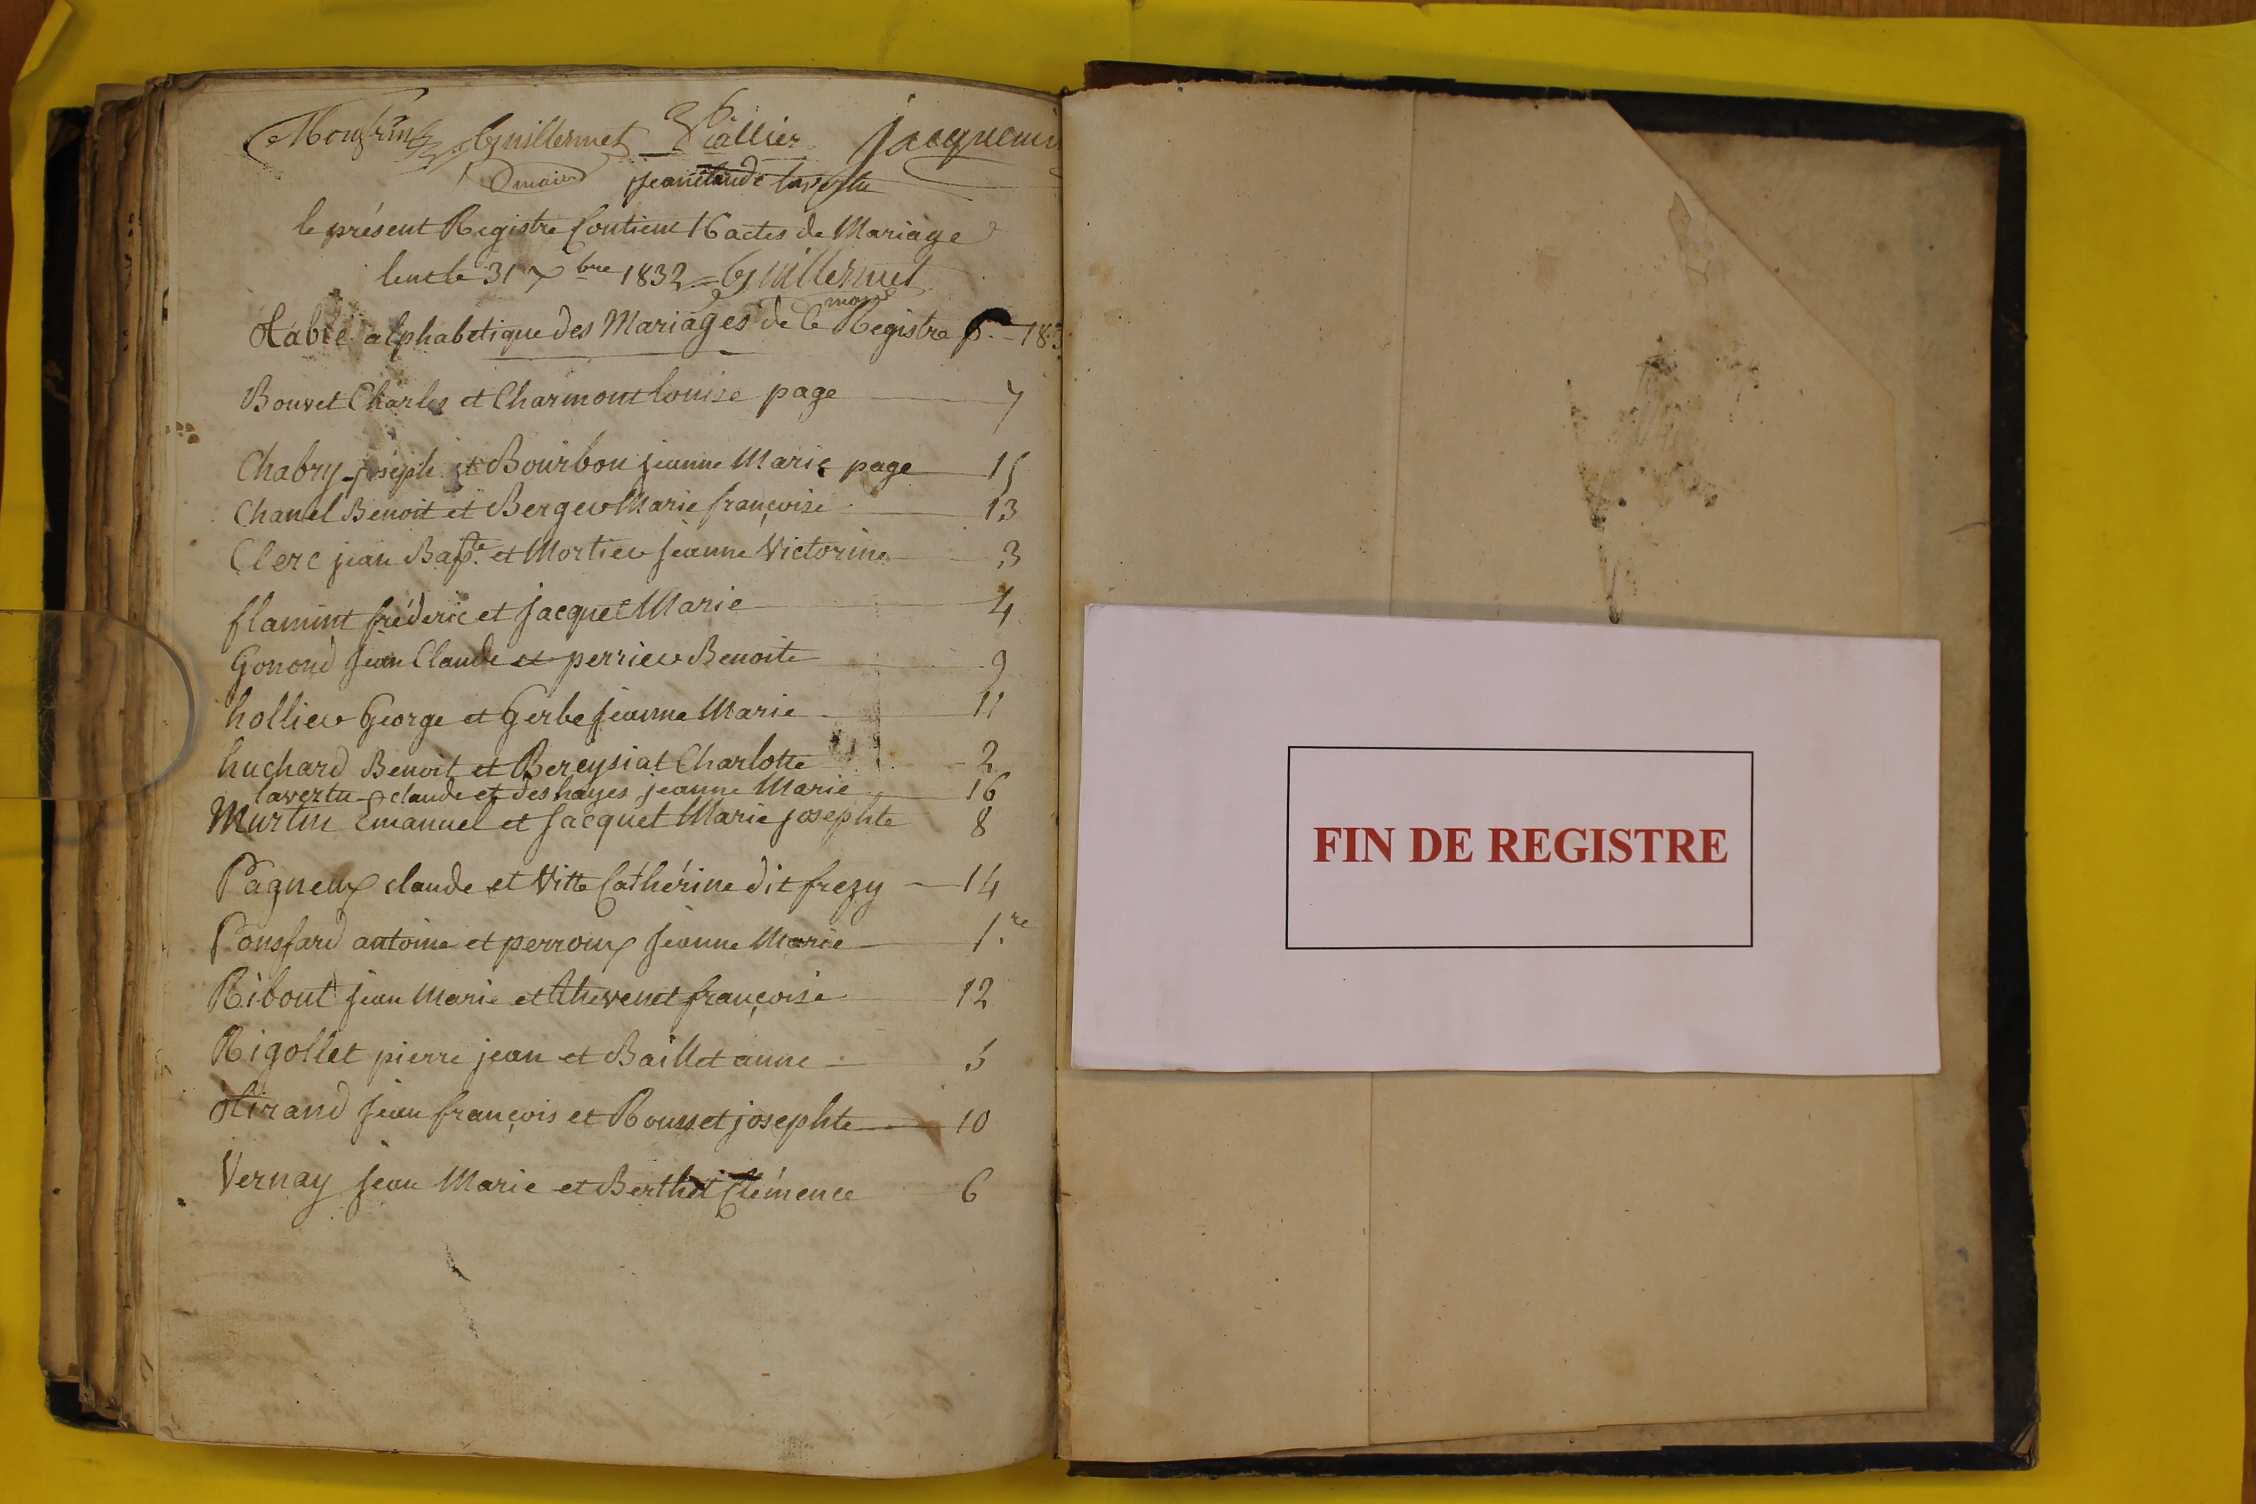 Guillermet Callier Jacquemin
maire jean claude lavertu
le présent Registre Contient 16 actes de Mariage
le 31 Xbre 1832 Guillermet
maire
Table alphabétique des Mariages de Ce Registre pr 183
Bouvet Charles et Charmont louise page 7
Chabry joseph et Bourbon jeanne Marie page 15
Chanel Benoit et Berger Marie françoise 13
Clerc jean Bapte. et Mortier jeanne Victorine 3
flamint fréderic et jacquet Marie 4
Gonond jean Claude et perrier Benoite 9
hollier George et Gerbe jeanne Marie 11
huchard Benoit et Bereysiat Charlotte 2
lavertu claude et deshayes jeanne Marie 16
Murtin Emanuel et jacquet Marie josephte 8
Pagneux claude et Vitte Cathérine dit frezy 14
Ponsard antoine et perroux jeanne Marie 1.re
Ribout jean Marie et thevenet françoise 12
Rigollet pierre jean et Baillet anne 5
Tirand jean françois et Rousset josephte 10
Vernay jean Marie et Berthet Clémence 6
FIN DE REGISTRE